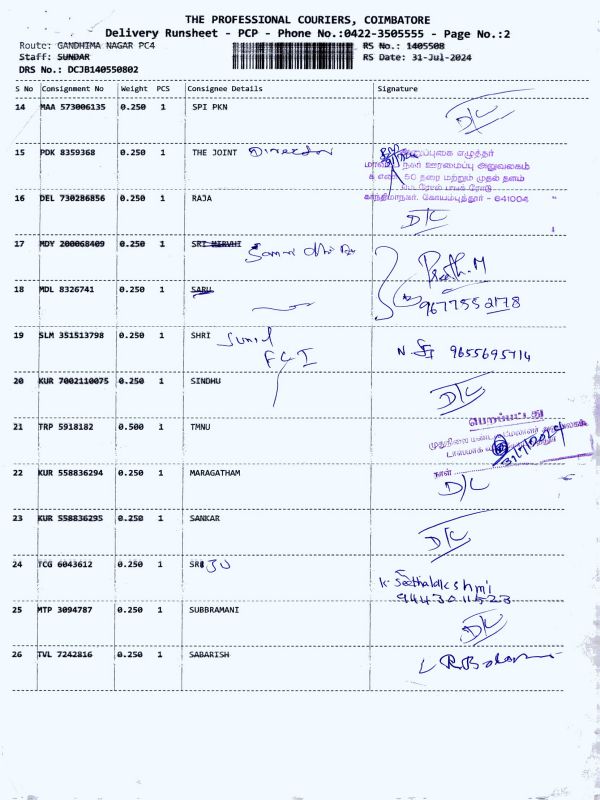 THE PROFESSIONAL COURIERS, COIMBATORE
Delivery Runsheet - PCP - Phone No.:0422-3505555 - Page No.:2
Route: GANDHIMA NAGAR PC4 RS No.: 1405508
Staff: SUNDAR RS Date: 31-Jul-2024
DRS No.: DCJB140550802
S No Consignment No Weight PCS Consignee Details Signature
14 MAA 573006135 0.250 1 SPI PKN D/C
15 PDK 8359368 0.250 1 THE JOINT Director
நகர ஊரமைப்பு அலுவலகம்
50 நரை மற்றும் முதல் தளம்
காந்திமாநகர், கோயம்புத்தூர் - 641004
16 DEL 730286856 0.250 1 RAJA D/C
17 MDY 200068409 0.250 1
18 MDL 8326741 0.250 1 SARU 9677552178
19 SLM 351513798 0.250 1 SHRI Sunil
FCI
9655695714
20 KUR 7002110075 0.250 1 SINDHU D/C
21 TRP 5918182 0.500 1 TMNU
பெறப்பட்டது
31/7/2024
நாள்
22 KUR 558836294 0.250 1 MARAGATHAM D/C
23 KUR 558836295 0.250 1 SANKAR D/C
24 TCG 6043612 0.250 1
K. Seethalakshmi
9443011523
25 MTP 3094787 0.250 1 SUBBRAMANI D/C
26 TVL 7242816 0.250 1 SABARISH